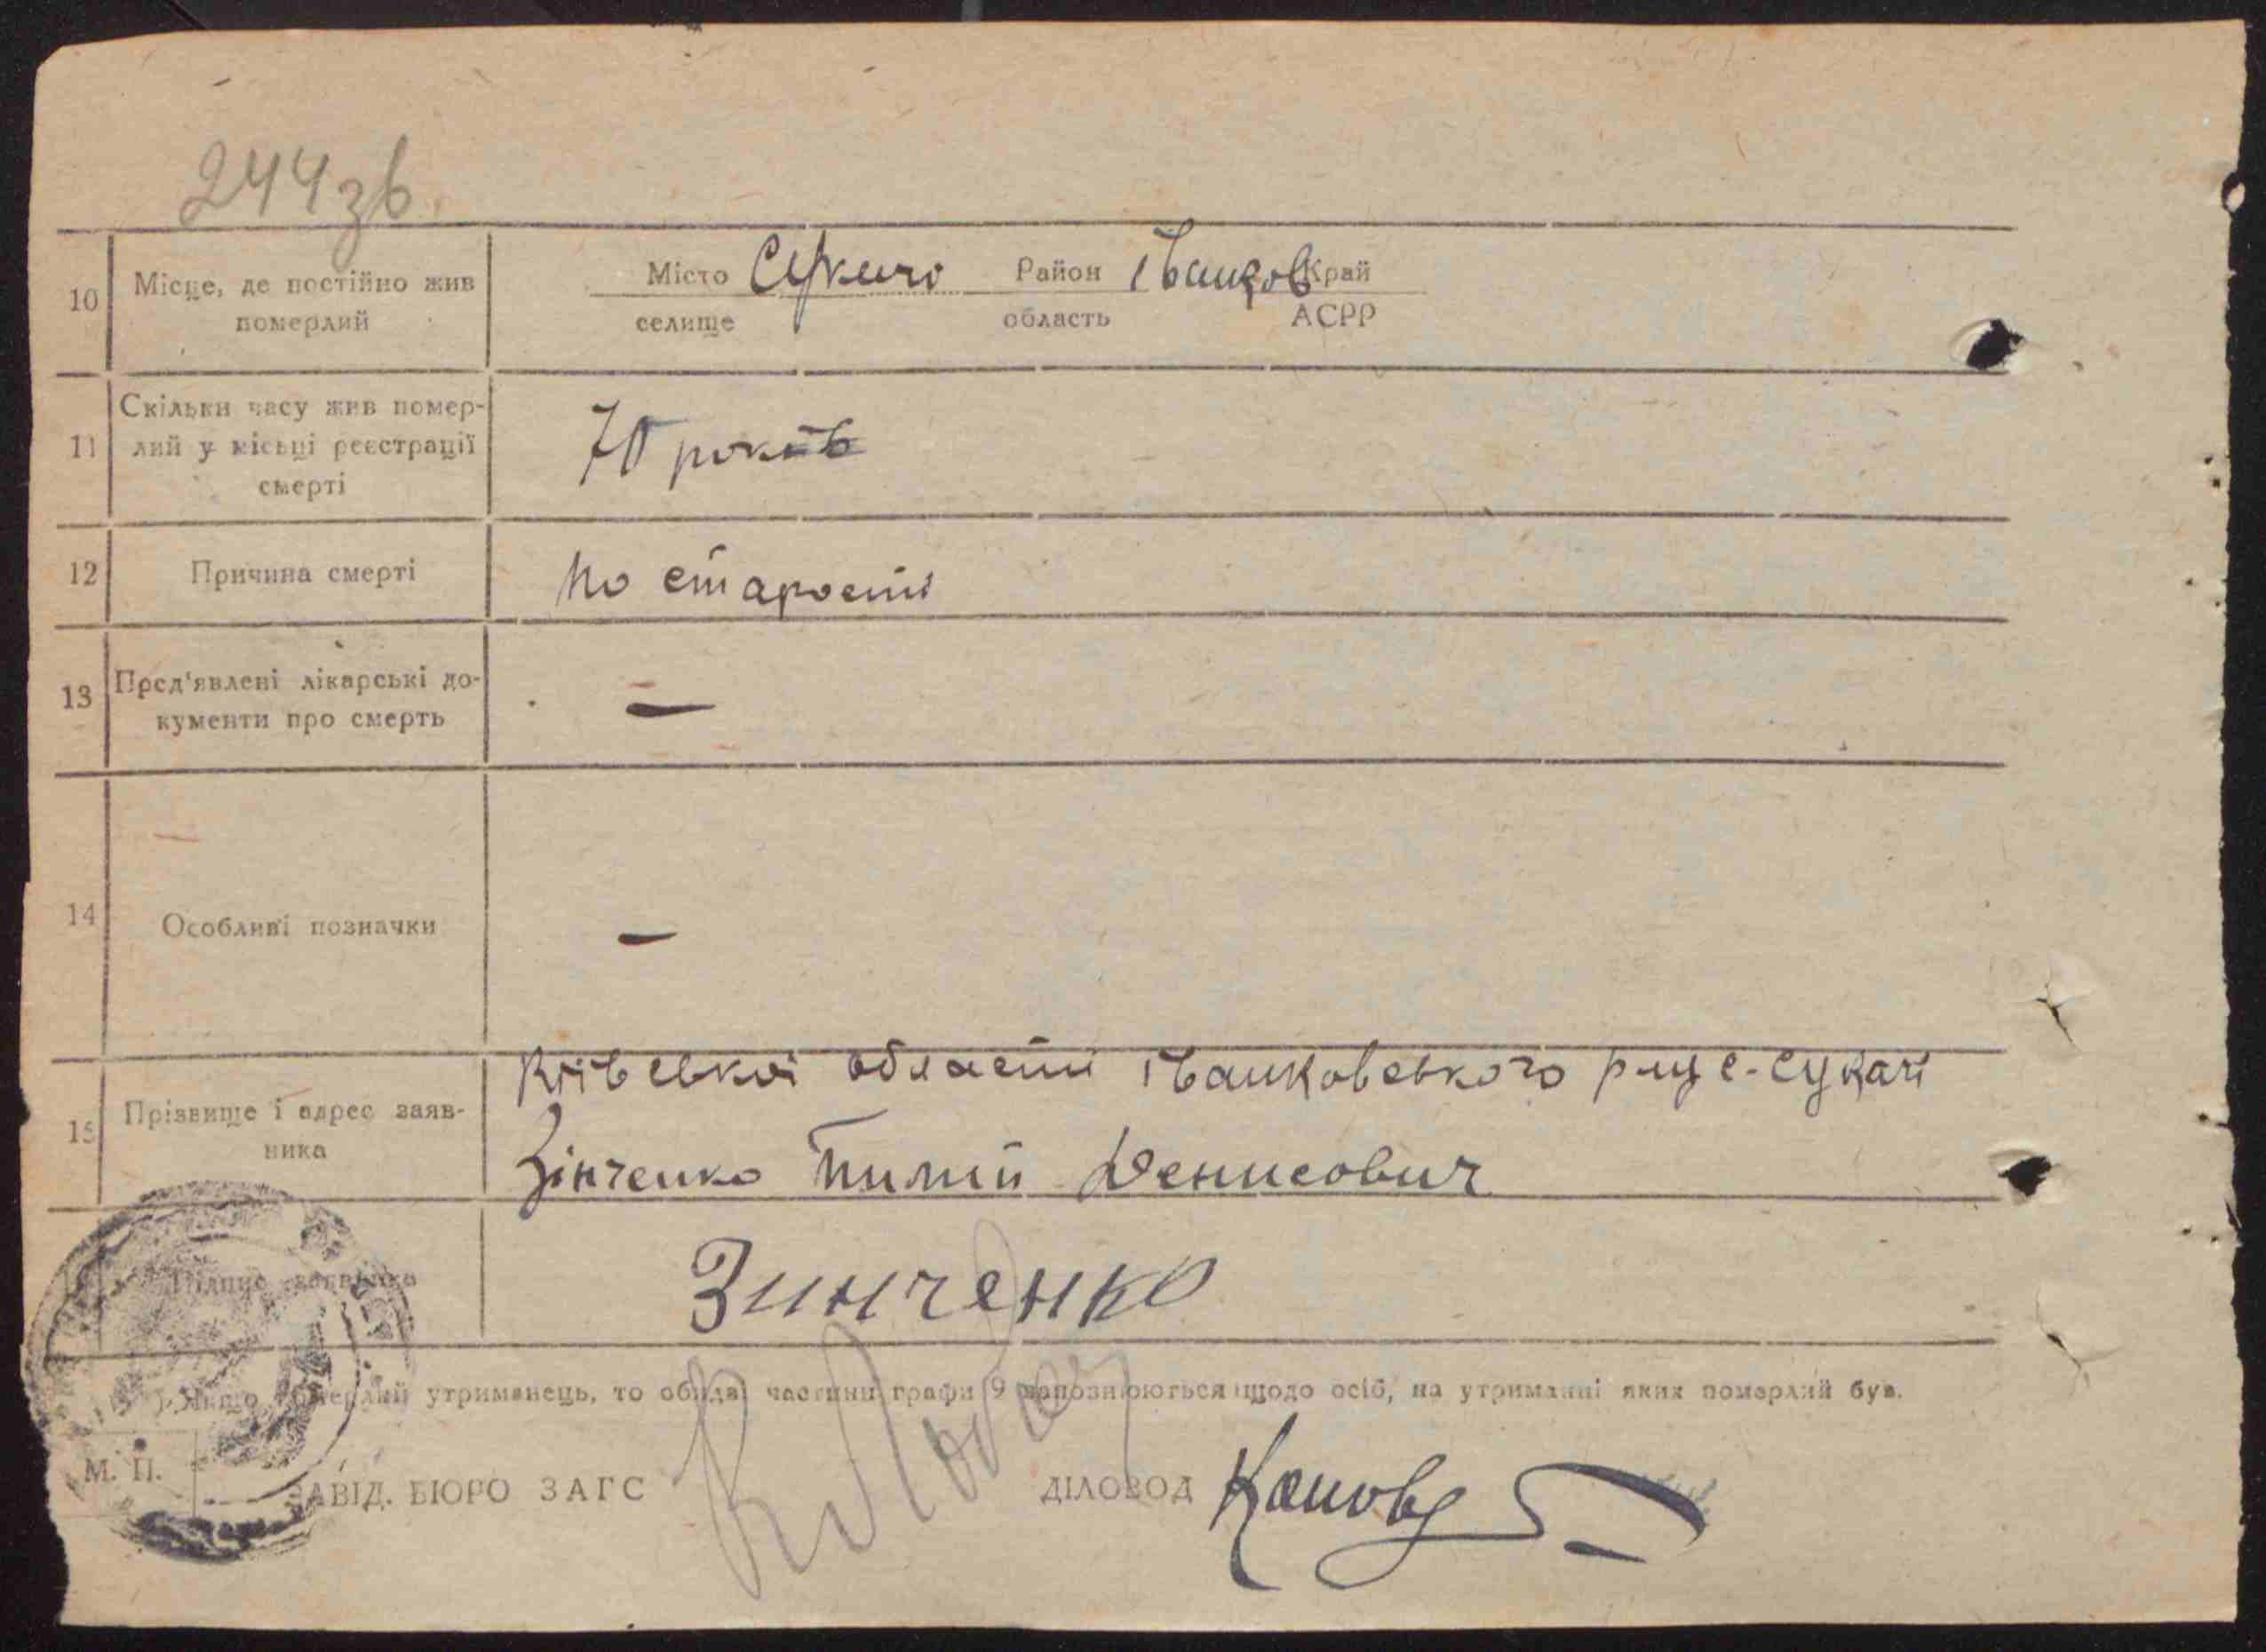 244 зв.
10 Місце, де постійно жив померлий
Місто Сукачі Район Іванков Край
селище область АСРР
11 Скільки часу жив помер-
лий у місьці реєстрації
смерті
70 років
12 Причина смерті
по старости
13 Пред'явлені лікарські до-
кументи про смерть
—
14 Особливі позначки
—
15 Прізвище і адрес заяв-
ника
Київської области Іванковського р-ну с. Сукачі
Зінченко Пилип Денисович
Підпис заявника
Зинченко
Якщо померлий утриманець, то обидві частини графи 9 заповнюються щодо осіб, на утриманні яких померлий був.
М. П.
ЗАВІД. БЮРО ЗАГС
ДІЛОВОД